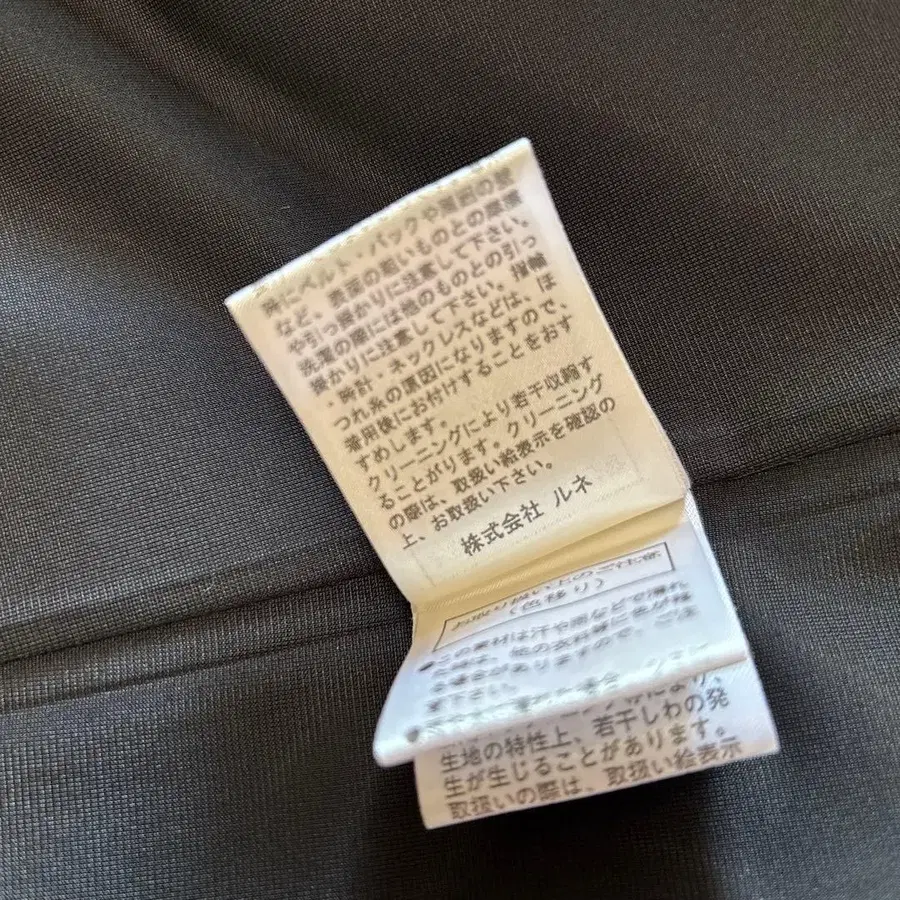 特にベルト・バックや着色の壁
など、表面の粗いものとの摩擦
や引っ掛かりに注意して下さい。
洗濯の際には他のものとの引っ
掛かりに注意して下さい。指輪
・時計・ネックレスなどは、ほ
つれ糸の原因になりますので、
着用後にお付けすることをおす
すめします。
クリーニングにより若干収縮す
ることがります。クリーニング
の際は、取扱い絵表示を確認の
上、お取扱い下さい。
株式会社 ルネ
お取り扱い上のご注意
(色移り)
●この素材は汗や雨などで濡れ
た時は、他の衣料等に色が移
る場合がありますので、ご注
意下さい。
生地の特性上、若干しわの発
生が生じることがあります。
取扱いの際は、取扱い絵表示